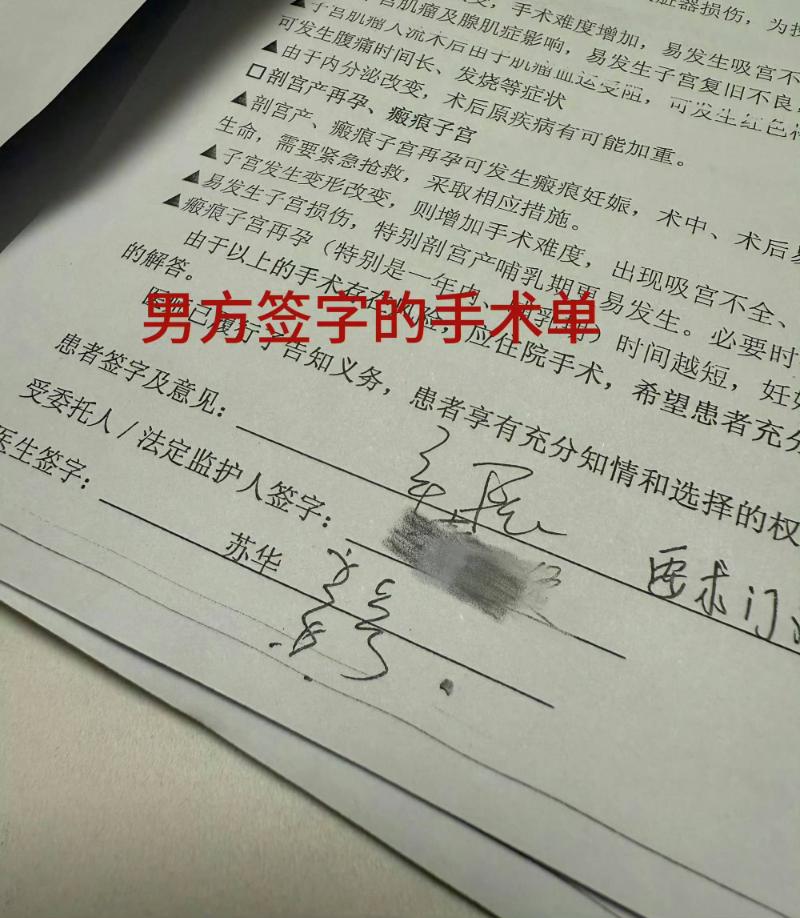 变，手术难度增加，易发生吸宫不
脏器损伤，为
宫肌瘤及腺肌症影响，易发生子宫复旧不良
▲子宫肌瘤人流术后由于肌瘤血运受阻，可发生红色
可发生腹痛时间长、发烧等症状
▲由于内分泌改变，术后原疾病有可能加重。
□剖宫产再孕、瘢痕子宫
▲剖宫产、瘢痕子宫再孕可发生瘢痕妊娠，术中、术后易
生命，需要紧急抢救，采取相应措施。
▲子宫发生变形改变，则增加手术难度，出现吸宫不全、
▲易发生子宫损伤，特别剖宫产哺乳期更易发生。必要时
▲瘢痕子宫再孕（特别是一年内、哺乳期）时间越短，妊娠
由于以上的手术存在风险，应住院手术，希望患者充分
的解答。
男方签字的手术单
医院已履行了告知义务，患者享有充分知情和选择的权
患者签字及意见：
要求门
受委托人/法定监护人签字：
医生签字：
苏华